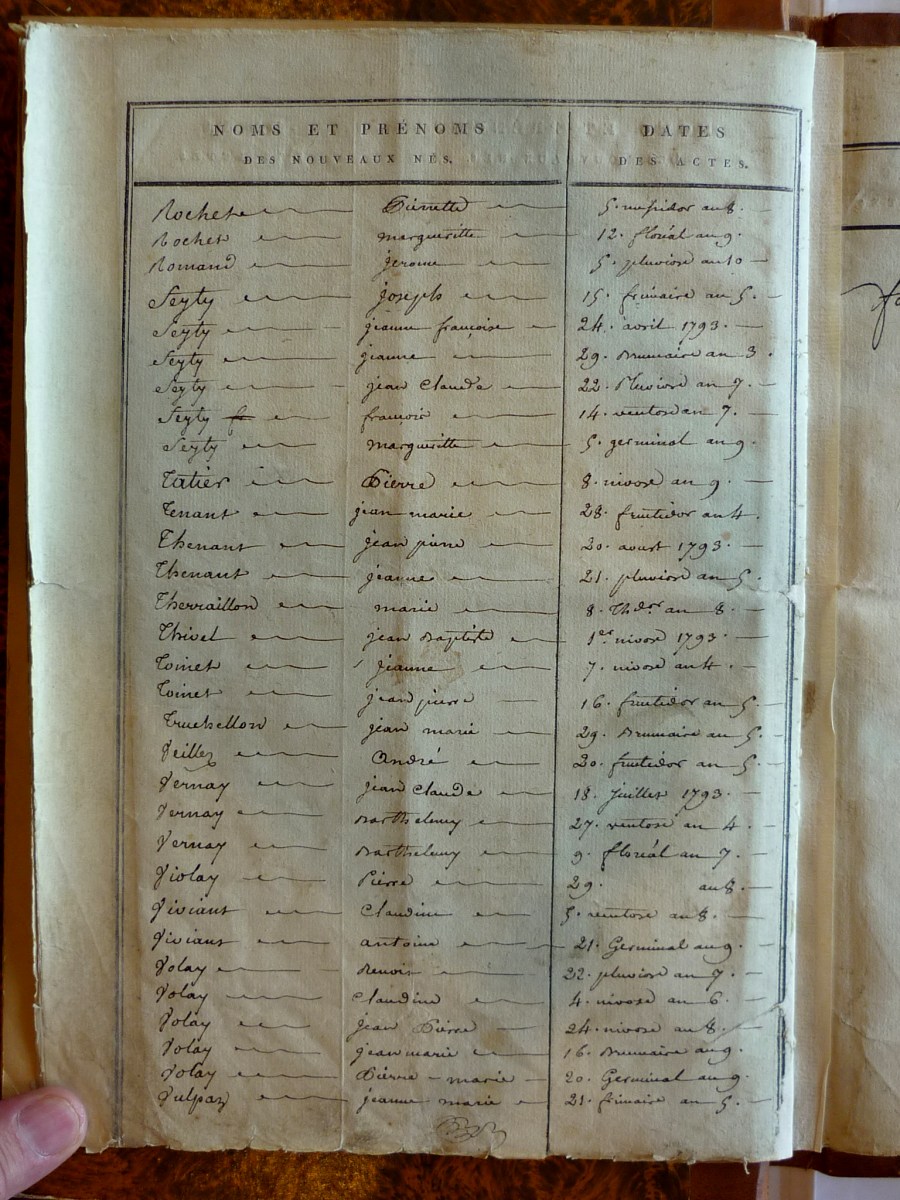 NOMS ET PRÉNOMS DATES
DES NOUVEAUX NÉS. DES ACTES.
Rochet Pierrette 5. messidor an 8.
Rochet margueritte 12. floréal an 9.
Romand jerome 5. pluviose an 10
Seyty joseph 15. frimaire an 5.
Seyty jeanne françoise 24. avril 1793.
Seyty jeanne 29. Brumaire an 3.
Seyty jean Claude 22. Pluviose an 7.
Seyty françois 14. ventose an 7.
Seyty margueritte 5. germinal an 9.
Tatier Pierre 8. nivose an 9.
Tenant jean marie 28. fructidor an 4.
Thenant jean pierre 20. aoust 1793.
Thenant jeanne 21. pluviose an 5.
Therraillon marie 8. Thdor an 8.
Thivel jean Baptiste 1er nivose 1793.
Toinet jeanne 7. nivose an 4.
Toinet jean pierre 16. fructidor an 5.
Truchellon jean marie 29. Brumaire an 5.
Veillez André 20. fructidor an 5.
Vernay jean Claude 18. juillet 1793.
Vernay Barthelemy 27. ventose an 4.
Vernay Barthelemy 9. floréal an 7.
Violay Pierre 29. an 8.
Viviant Claudine 5. ventose an 8.
Viviant antoine 21. Germinal an 9.
Volay Benoit 22. pluviose an 7.
Volay Claudine 4. nivose an 6.
Volay jean Pierre 24. nivose an 8.
Volay jean marie 16. Brumaire an 9.
Volay Pierre-marie 20. Germinal an 9.
Vulpaz jeanne marie 21. frimaire an 5.